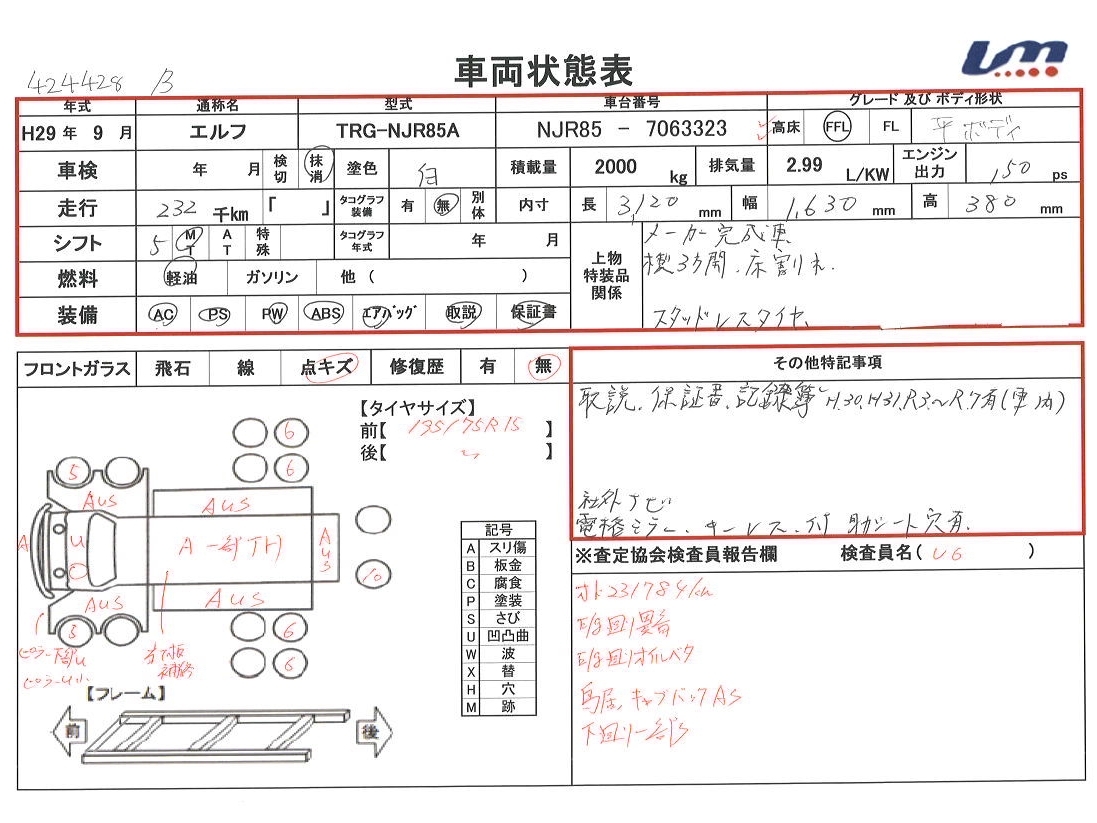 車両状態表
424428 B
UM
年式 通称名 型式 車台番号 グレード 及び ボディ形状
H29 年 9 月 エルフ TRG-NJR85A NJR85 - 7063323 高床 FFL FL 平ボディ
車検 年 月 検切 抹消 塗色 白 積載量 2000 kg 排気量 2.99 L/KW エンジン出力 150 ps
走行 232 千km 「 」 タコグラフ装備 有 無 別体 内寸 長 3,120 mm 幅 1,630 mm 高 380 mm
シフト 5 MT AT 特殊 タコグラフ年式 年 月 上物特装品関係 メーカー完成車
燃料 軽油 ガソリン 他 ( ) 床割れ.
装備 AC PS PW ABS エアバッグ 取説 保証書 スタッドレスタイヤ
フロントガラス 飛石 線 点キズ 修復歴 有 無 その他特記事項
取説、保証書、記録簿 H.30、H31、R3〜R7有(車内)
【タイヤサイズ】
前【 195/75R15 】
後【 〃 】
6
6
5
AUS
AUS
A U A 一部TH AUS
10
AUS
AUS
3
6
6
ピラー下部U
ピラーU小
補修
【フレーム】
前 後
記号
A スリ傷
B 板金
C 腐食
P 塗装
S さび
U 凹凸曲
W 波
X 替
H 穴
M 跡
社外ナビ
電格ミラー、キーレス、付 助シート穴有.
※査定協会検査員報告欄 検査員名( UG )
オド231784km
E/g回り異音
E/g回りオイルベタ
鳥居、キャブバックAS
下回り一部S